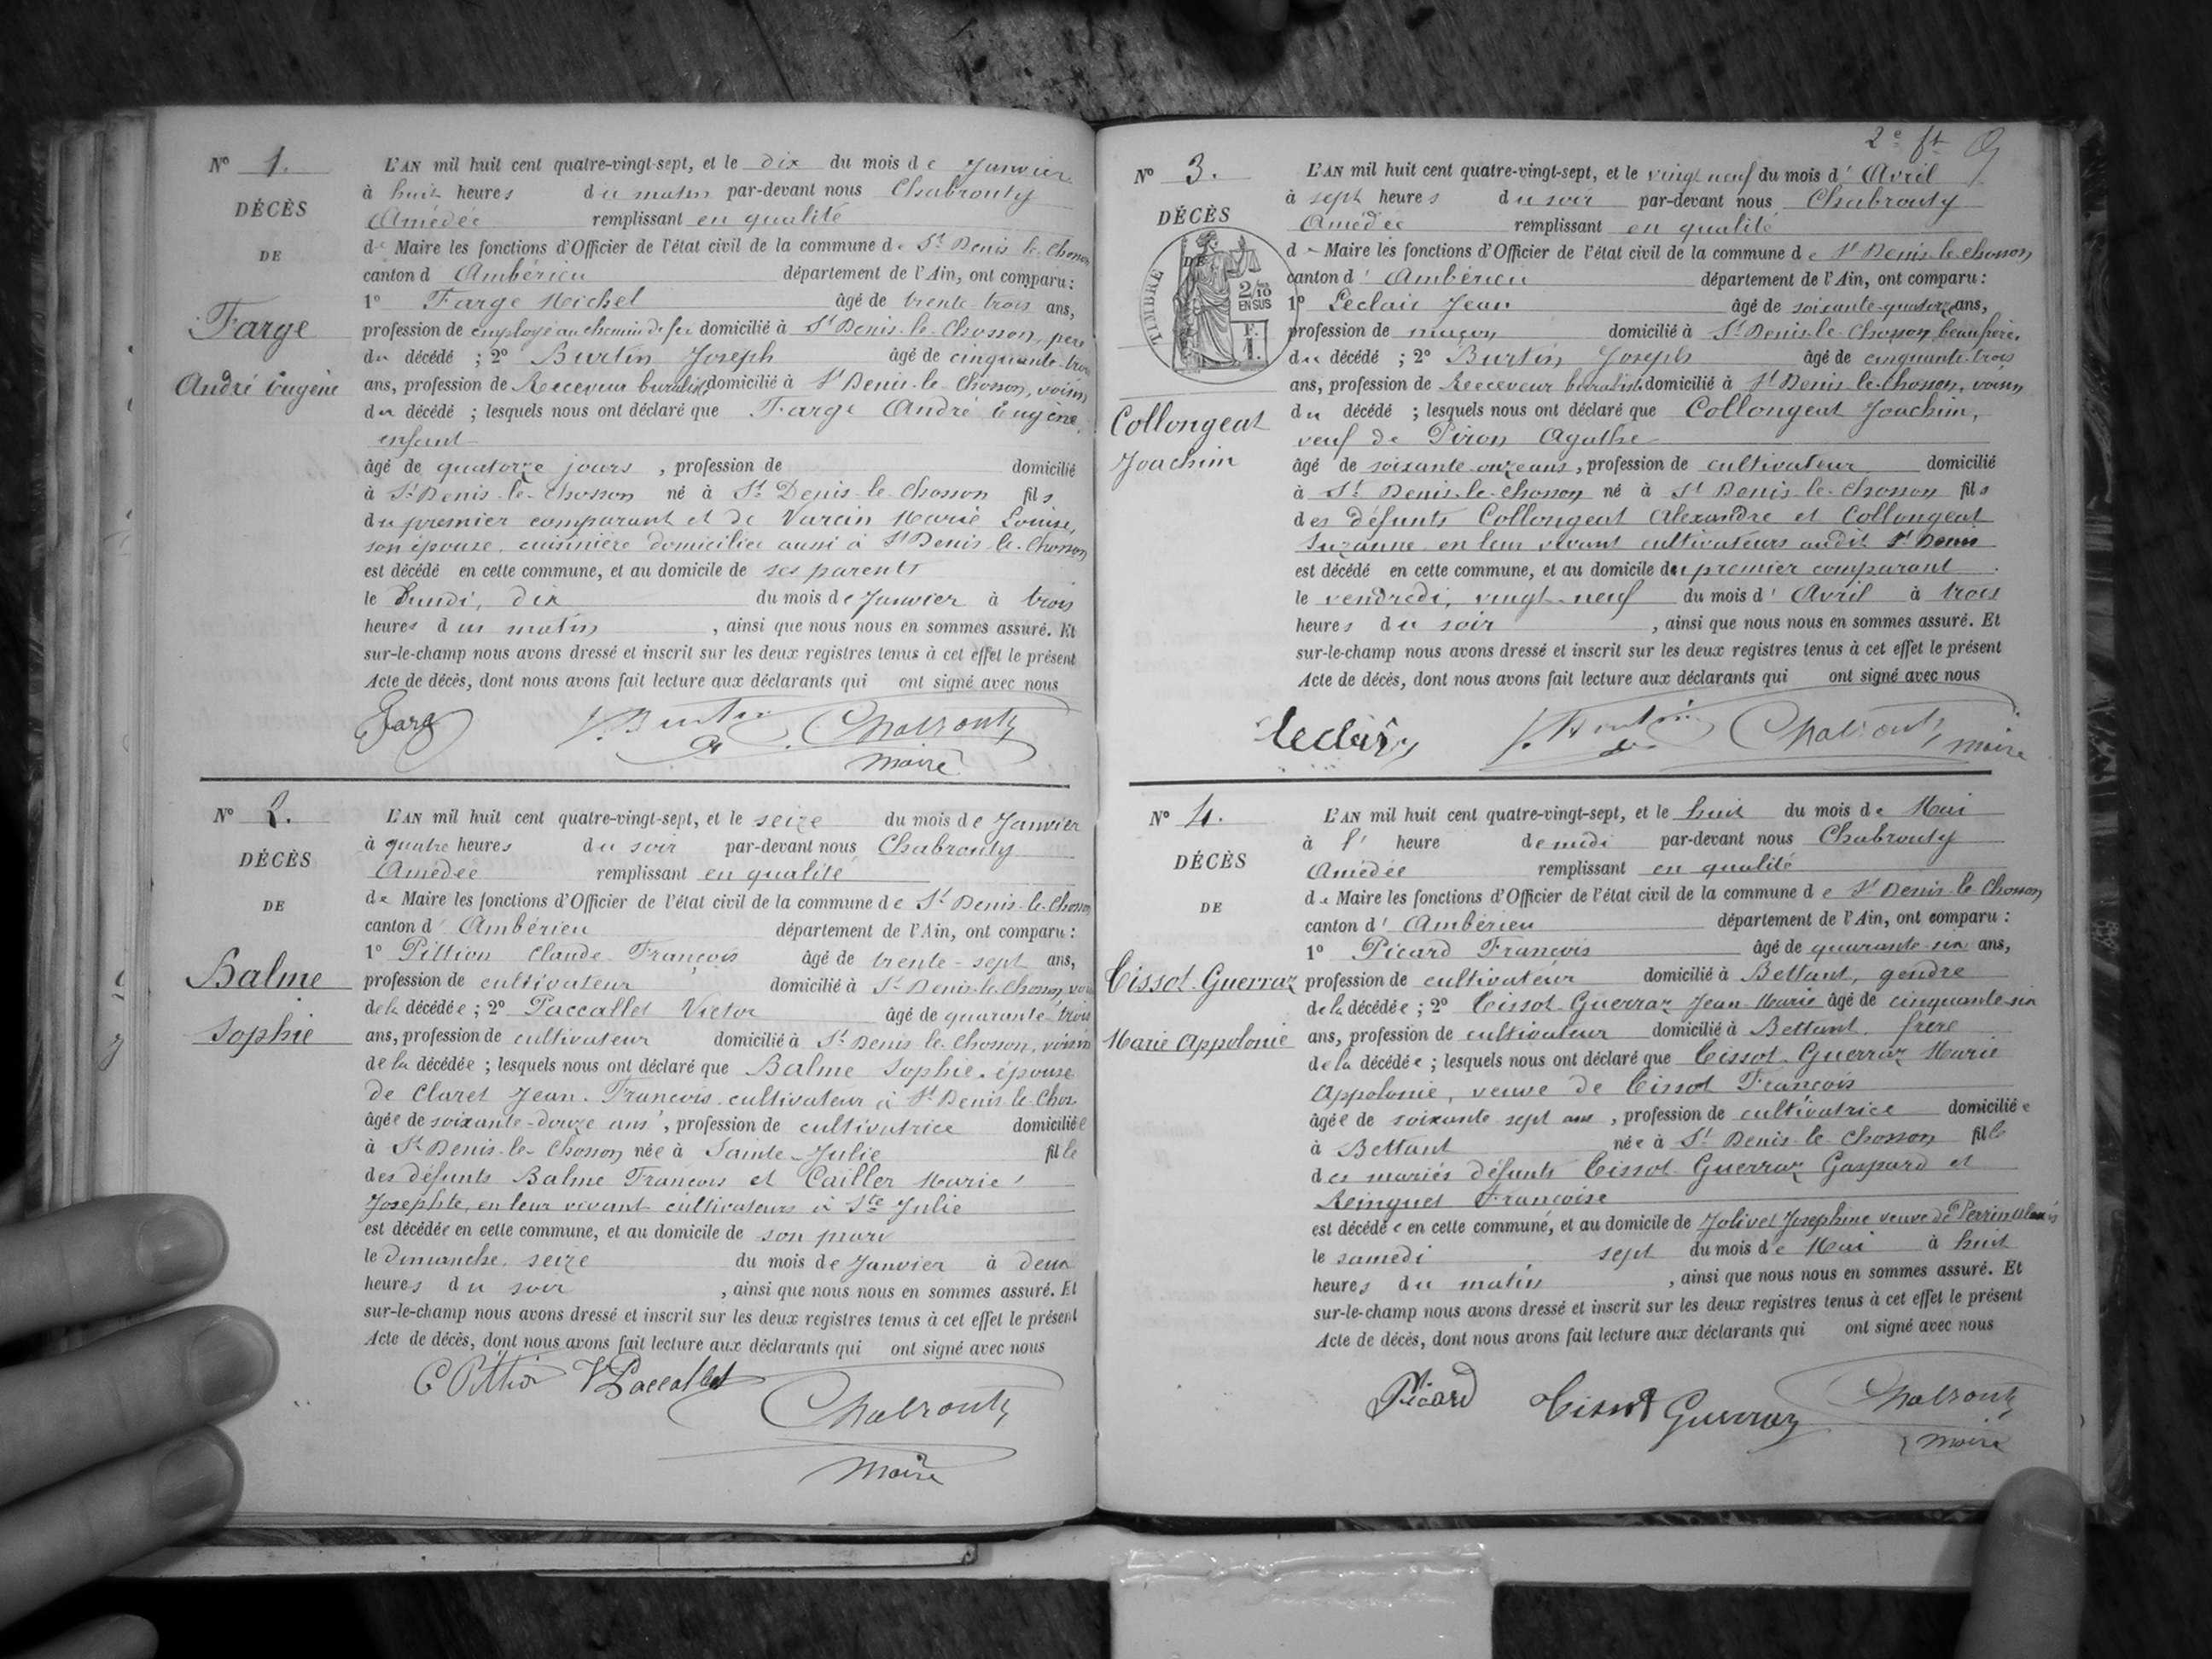 N° 1.
DÉCÈS
DE
Farge
André Eugène
L'AN mil huit cent quatre-vingt-sept, et le dix du mois de Janvier
à huit heures du matin par-devant nous Chabrouty
Amédée remplissant en qualité
de Maire les fonctions d'Officier de l'état civil de la commune de St Denis-le-Chosson
canton d' Ambérieu département de l'Ain, ont comparu :
1° Farge Michel âgé de trente-trois ans,
profession de employé au chemin de fer domicilié à St Denis-le-Chosson, père
du décédé ; 2° Burtin Joseph âgé de cinquante-trois
ans, profession de Receveur buraliste domicilié à St Denis-le-Chosson, voisin
du décédé ; lesquels nous ont déclaré que Farge André Eugène,
enfant
âgé de quatorze jours , profession de domicilié
à St Denis-le-Chosson né à St Denis-le-Chosson fils
du premier comparant et de Varcin Marie Louise,
son épouse, cuisinière domiciliée aussi à St Denis-le-Chosson
est décédé en cette commune, et au domicile de ses parents
le Lundi, dix du mois de Janvier à trois
heures du matin , ainsi que nous nous en sommes assuré. Et
sur-le-champ nous avons dressé et inscrit sur les deux registres tenus à cet effet le présent
Acte de décès, dont nous avons fait lecture aux déclarants qui ont signé avec nous
Farge J. Burtin Chabrouty
Maire
N° 2.
DÉCÈS
DE
Balme
Sophie
L'AN mil huit cent quatre-vingt-sept, et le seize du mois de Janvier
à quatre heures du soir par-devant nous Chabrouty
Amédée remplissant en qualité
de Maire les fonctions d'Officier de l'état civil de la commune de St Denis-le-Chosson
canton d' Ambérieu département de l'Ain, ont comparu :
1° Pittion Claude-François âgé de trente-sept ans,
profession de cultivateur domicilié à St Denis-le-Chosson,
de la décédée ; 2° Paccallet Victor âgé de quarante-trois
ans, profession de cultivateur domicilié à St Denis-le-Chosson, voisin
de la décédée ; lesquels nous ont déclaré que Balme Sophie, épouse
de Claret Jean-François cultivateur à St Denis-le-Chos.
âgée de soixante-douze ans , profession de cultivatrice domiciliée
à St Denis-le-Chosson née à Sainte-Julie fille
des défunts Balme François et Cailler Marie
Josephte, en leur vivant cultivateurs à Ste Julie
est décédée en cette commune, et au domicile de son mari
le dimanche, seize du mois de Janvier à deux
heures du soir , ainsi que nous nous en sommes assuré. Et
sur-le-champ nous avons dressé et inscrit sur les deux registres tenus à cet effet le présent
Acte de décès, dont nous avons fait lecture aux déclarants qui ont signé avec nous
C Pittion V Paccallet Chabrouty
Maire
2e ft
N° 3.
DÉCÈS
DE
TIMBRE
2/10
EN SUS
F.
1.
Collongeat
Joachim
L'AN mil huit cent quatre-vingt-sept, et le vingt neuf du mois d' Avril
à sept heures du soir par-devant nous Chabrouty
Amédée remplissant en qualité
de Maire les fonctions d'Officier de l'état civil de la commune de St Denis-le-Chosson
canton d' Ambérieu département de l'Ain, ont comparu :
1° Leclair Jean âgé de soixante-quatorze ans,
profession de maçon domicilié à St Denis-le-Chosson, beau frère
du décédé ; 2° Burtin Joseph âgé de cinquante-trois
ans, profession de Receveur buraliste domicilié à St Denis-le-Chosson, voisin
du décédé ; lesquels nous ont déclaré que Collongeat Joachim,
veuf de Piron Agathe
âgé de soixante-onze ans , profession de cultivateur domicilié
à St Denis-le-Chosson né à St Denis-le-Chosson fils
des défunts Collongeat Alexandre et Collongeat
Suzanne en leur vivant cultivateurs audit St Denis
est décédé en cette commune, et au domicile du premier comparant
le vendredi, vingt-neuf du mois d' Avril à trois
heures du soir , ainsi que nous nous en sommes assuré. Et
sur-le-champ nous avons dressé et inscrit sur les deux registres tenus à cet effet le présent
Acte de décès, dont nous avons fait lecture aux déclarants qui ont signé avec nous
leclair J. Burtin Chabrouty maire
N° 4.
DÉCÈS
DE
Tissot-Guerraz
Marie Appolonie
L'AN mil huit cent quatre-vingt-sept, et le huit du mois de Mai
à l' heure de midi par-devant nous Chabrouty
Amédée remplissant en qualité
de Maire les fonctions d'Officier de l'état civil de la commune de St Denis-le-Chosson
canton d' Ambérieu département de l'Ain, ont comparu :
1° Picard François âgé de quarante-six ans,
profession de cultivateur domicilié à Bettant, gendre
de la décédée ; 2° Tissot-Guerraz Jean-Marie âgé de cinquante-six
ans, profession de cultivateur domicilié à Bettant, frère
de la décédée ; lesquels nous ont déclaré que Tissot-Guerraz Marie
Appolonie, veuve de Tissot François
âgée de soixante sept ans , profession de cultivatrice domiciliée
à Bettant née à St Denis-le-Chosson fille
des mariés défunts Tissot-Guerraz Gaspard et
Reinguet Françoise
est décédée en cette commune, et au domicile de Jolivet Josephine veuve de Perrin Alexis
le samedi sept du mois de Mai à huit
heures du matin , ainsi que nous nous en sommes assuré. Et
sur-le-champ nous avons dressé et inscrit sur les deux registres tenus à cet effet le présent
Acte de décès, dont nous avons fait lecture aux déclarants qui ont signé avec nous
Picard Tissot Guerraz Chabrouty
maire